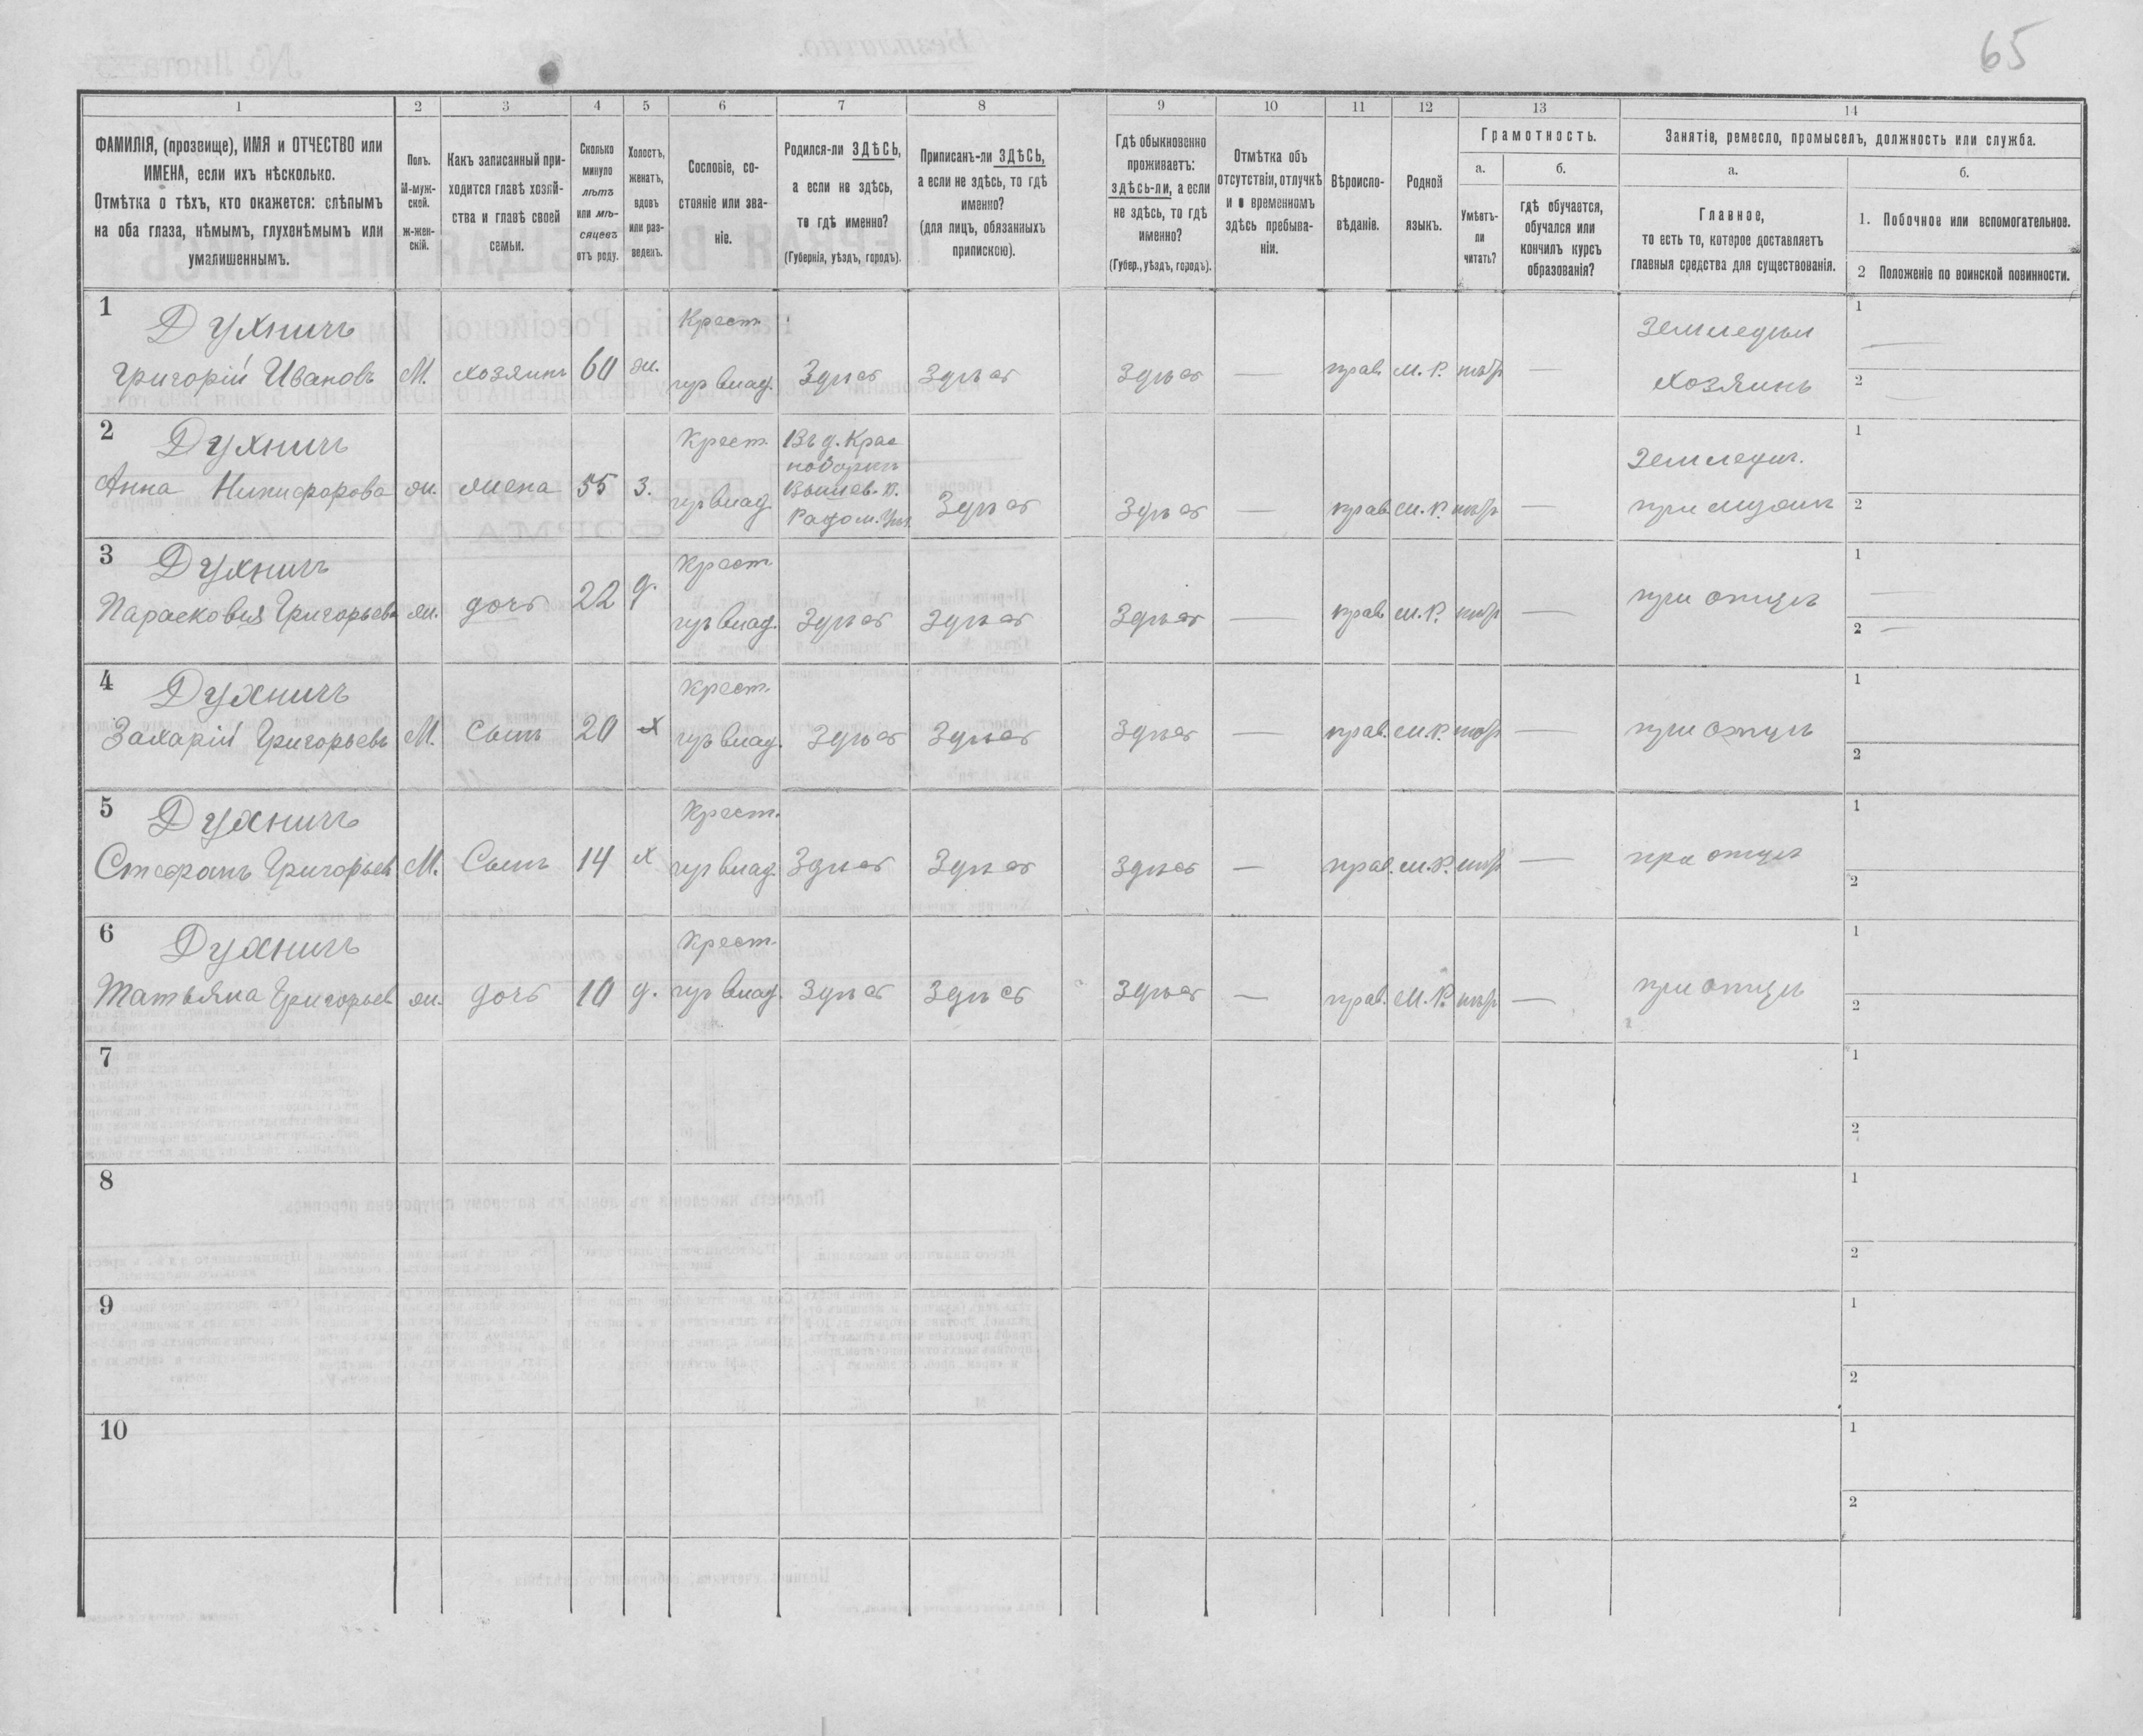 65
1 2 3 4 5 6 7 8 9 10 11 12 13 14
ФАМИЛІЯ, (прозвище), ИМЯ и ОТЧЕСТВО или
ИМЕНА, если ихъ нѣсколько.
Отмѣтка о тѣхъ, кто окажется: слѣпымъ
на оба глаза, нѣмымъ, глухонѣмымъ или
умалишеннымъ.
Полъ.
М-муж-
ской.
ж-жен-
скій.
Какъ записанный при-
ходится главѣ хозяй-
ства и главѣ своей
семьи.
Сколько
минуло
лѣтъ
или мѣ-
сяцевъ
отъ роду.
Холостъ,
женатъ,
вдовъ
или раз-
веденъ.
Сословіе, со-
стояніе или зва-
ніе.
Родился-ли ЗДѢСЬ,
а если не здѣсь,
то гдѣ именно?
(Губернія, уѣздъ, городъ).
Приписанъ-ли ЗДѢСЬ,
а если не здѣсь, то гдѣ
именно?
(для лицъ, обязанныхъ
припискою).
Гдѣ обыкновенно
проживаетъ:
здѣсь-ли, а если
не здѣсь, то гдѣ
именно?
(Губер., уѣздъ, городъ).
Отмѣтка объ
отсутствіи, отлучкѣ
и о временномъ
здѣсь пребыва-
ніи.
Вѣроиспо-
вѣданіе.
Родной
языкъ.
Грамотность.
а.
Умѣетъ-
ли
читать?
б.
гдѣ обучается,
обучался или
кончилъ курсъ
образованія?
Занятіе, ремесло, промыселъ, должность или служба.
а.
Главное,
то есть то, которое доставляетъ
главныя средства для существованія.
б.
1. Побочное или вспомогательное.
2 Положеніе по воинской повинности.
1 Духничъ Крест. Земледѣл 1
Григорій Ивановъ М. хозяинъ 60 ж. гр влад. Здѣсь Здѣсь Здѣсь — прав. М. Р. — хозяинъ 2
2 Духничъ Крест. Въ д. Крас Земледѣл. 1
Анна Никифорова ж. жена 55 З. гр влад. Вышев. в. Радом. Здѣсь Здѣсь — прав. М. Р. — при мужѣ 2
3 Духничъ Крест. 1
Парасковія Григорьева ж. дочь 22 д. гр влад. Здѣсь Здѣсь Здѣсь — прав. М. Р. — при отцѣ 2
4 Духничъ Крест. 1
Захарій Григорьевъ М. Сынъ 20 х гр влад. Здѣсь Здѣсь Здѣсь — прав. М. Р. — при отцѣ 2
5 Духничъ Крест. 1
Стефанъ Григорьевъ М. Сынъ 14 х гр влад. Здѣсь Здѣсь Здѣсь — прав. М. Р. — при отцѣ 2
6 Духничъ Крест. 1
Татьяна Григорьев ж. дочь 10 д. гр влад. Здѣсь Здѣсь Здѣсь — прав. М. Р. — при отцѣ 2
7 1
2
8 1
2
9 1
2
10 1
2